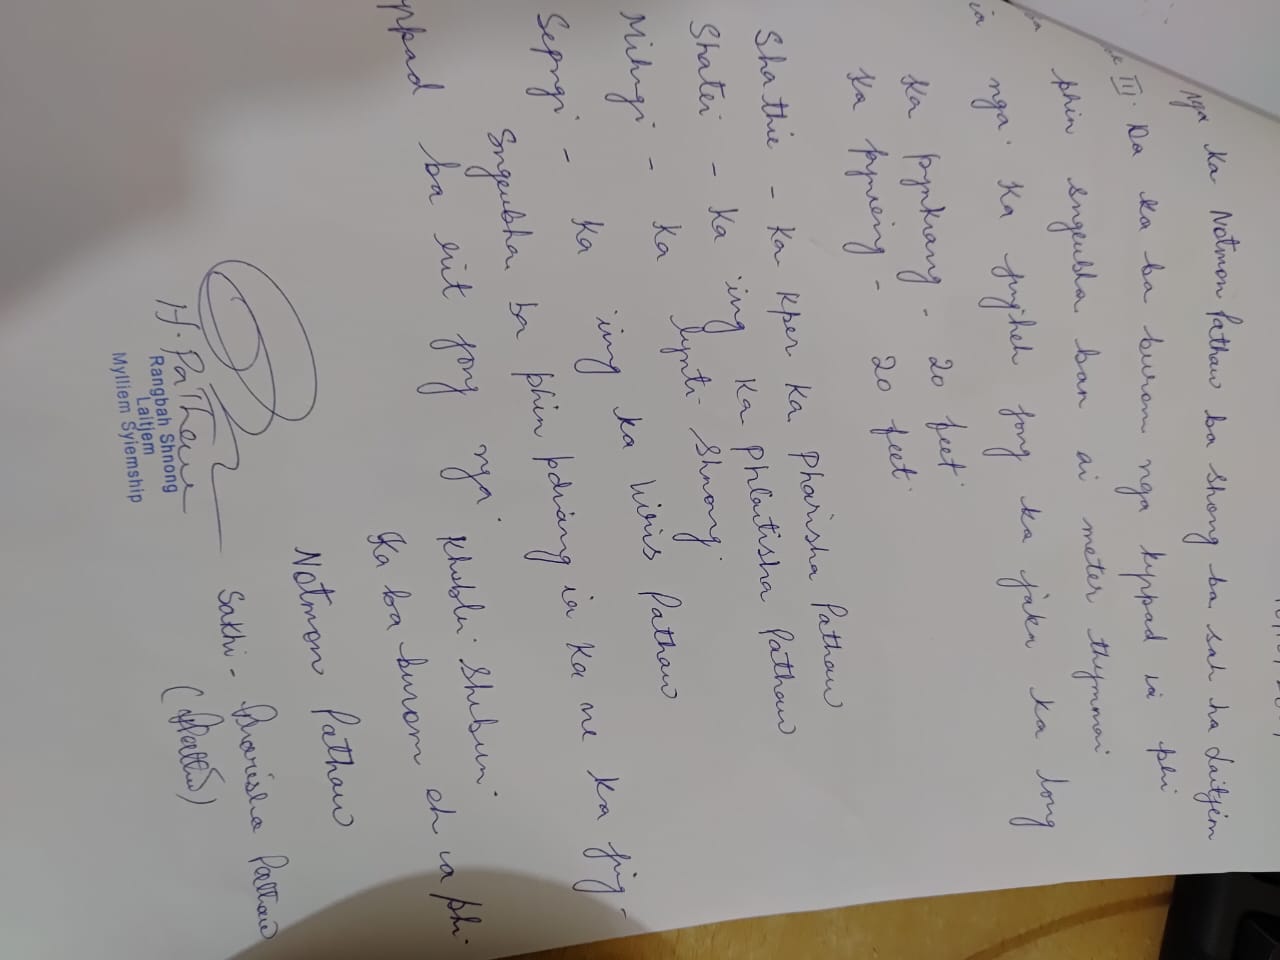 nga Ka Notmon Pathaw ba shong ba sah ha Laitjem
III. Da ka ba burom nga kyrpad ia phi
phin sngewbha ban ai meter thymmai
ia nga. Ka jingheh jong ka jaka ka long
Ka pynkiang - 20 feet.
Ka pynneng - 20 feet.
Shathie - Ka Kper ka Pharisha Pathaw
Shatei - Ka ing Ka Phlaitisha Pathaw
Mihngi - ka lynti Shnong.
Sepngi - Ka ing ka Liris Pathaw
Sngewbha ba phin pdiang ia Ka ne ka jing-
kyrpad ba rit jong nga.
Khublei Shibun.
Ka ba burom eh ia phi.
Notmon Pathaw
Sakhi - Pharisha Pathaw
H. Pathaw
Rangbah Shnong
Laitjem
Mylliem Syiemship